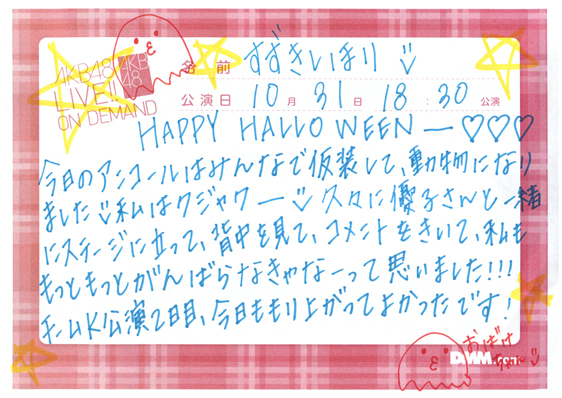 AKB48
LIVE!!
ON DEMAND
AKB
48
名前 すずきまりや
公演日 10月31日 18:30公演
HAPPY HALLOWEEN ー♡♡♡
今日のアンコールはみんなで仮装して、動物になり
ました 私はクジャクー 久々に優子さんと一緒
にステージに立って、背中を見て、コメントをきいて、私も
もっともっとがんばらなきゃなーって思いました!!!
チームK公演2日目、今日ももり上がってよかったです!
おばけ
ちゃん
DMM.com